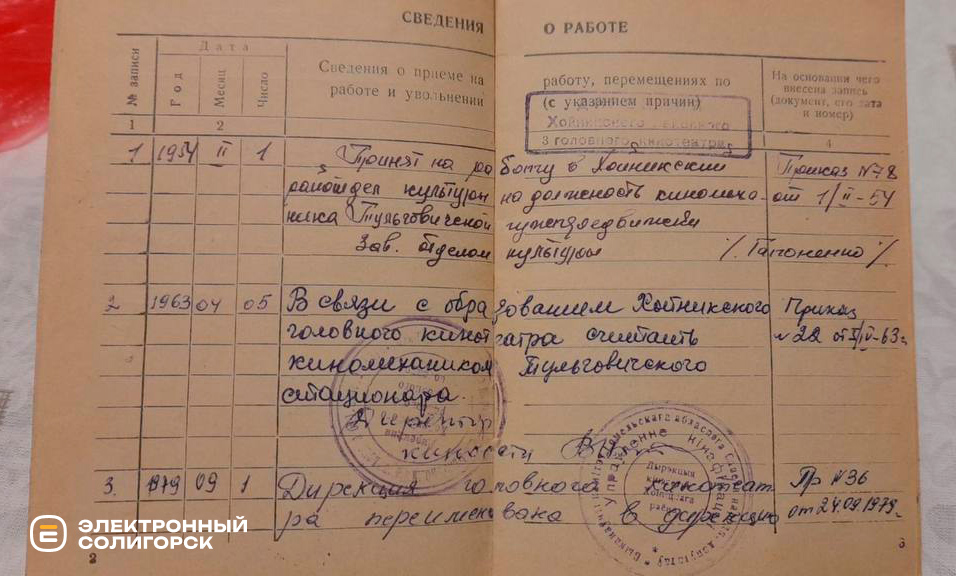 СВЕДЕНИЯ О РАБОТЕ
№ записи
Дата
Год
Месяц
Число
Сведения о приеме на работу, перемещениях по
работе и увольнении (с указанием причин)
На основании чего
внесена запись
(документ, его дата
и номер)
1 2 4
Хойникского
головного кинотеатра
1 1954 II 1 Принят на работу в Хойникский Приказ N78
райотдел культуры на должность киномеха- от 1/II-54
ника Тульговичской кинопередвижки
Зав. отделом культуры /Гапоненко/
2 1963 04 05 В связи с образованием Хойникского Приказ
головного кинотеатра считать N 22 от 5/IV-63г
киномехаником Тульговичского
стационара.
Директор
киносети
3. 1979 09 1 Дирекция головного кинотеат Пр N36
ра переименована в дирекцию от 24.09.1979г
Упраўленне кінафікацыі
Дырэкцыя
раёна
ЭЛЕКТРОННЫЙ
СОЛИГОРСК
2 3